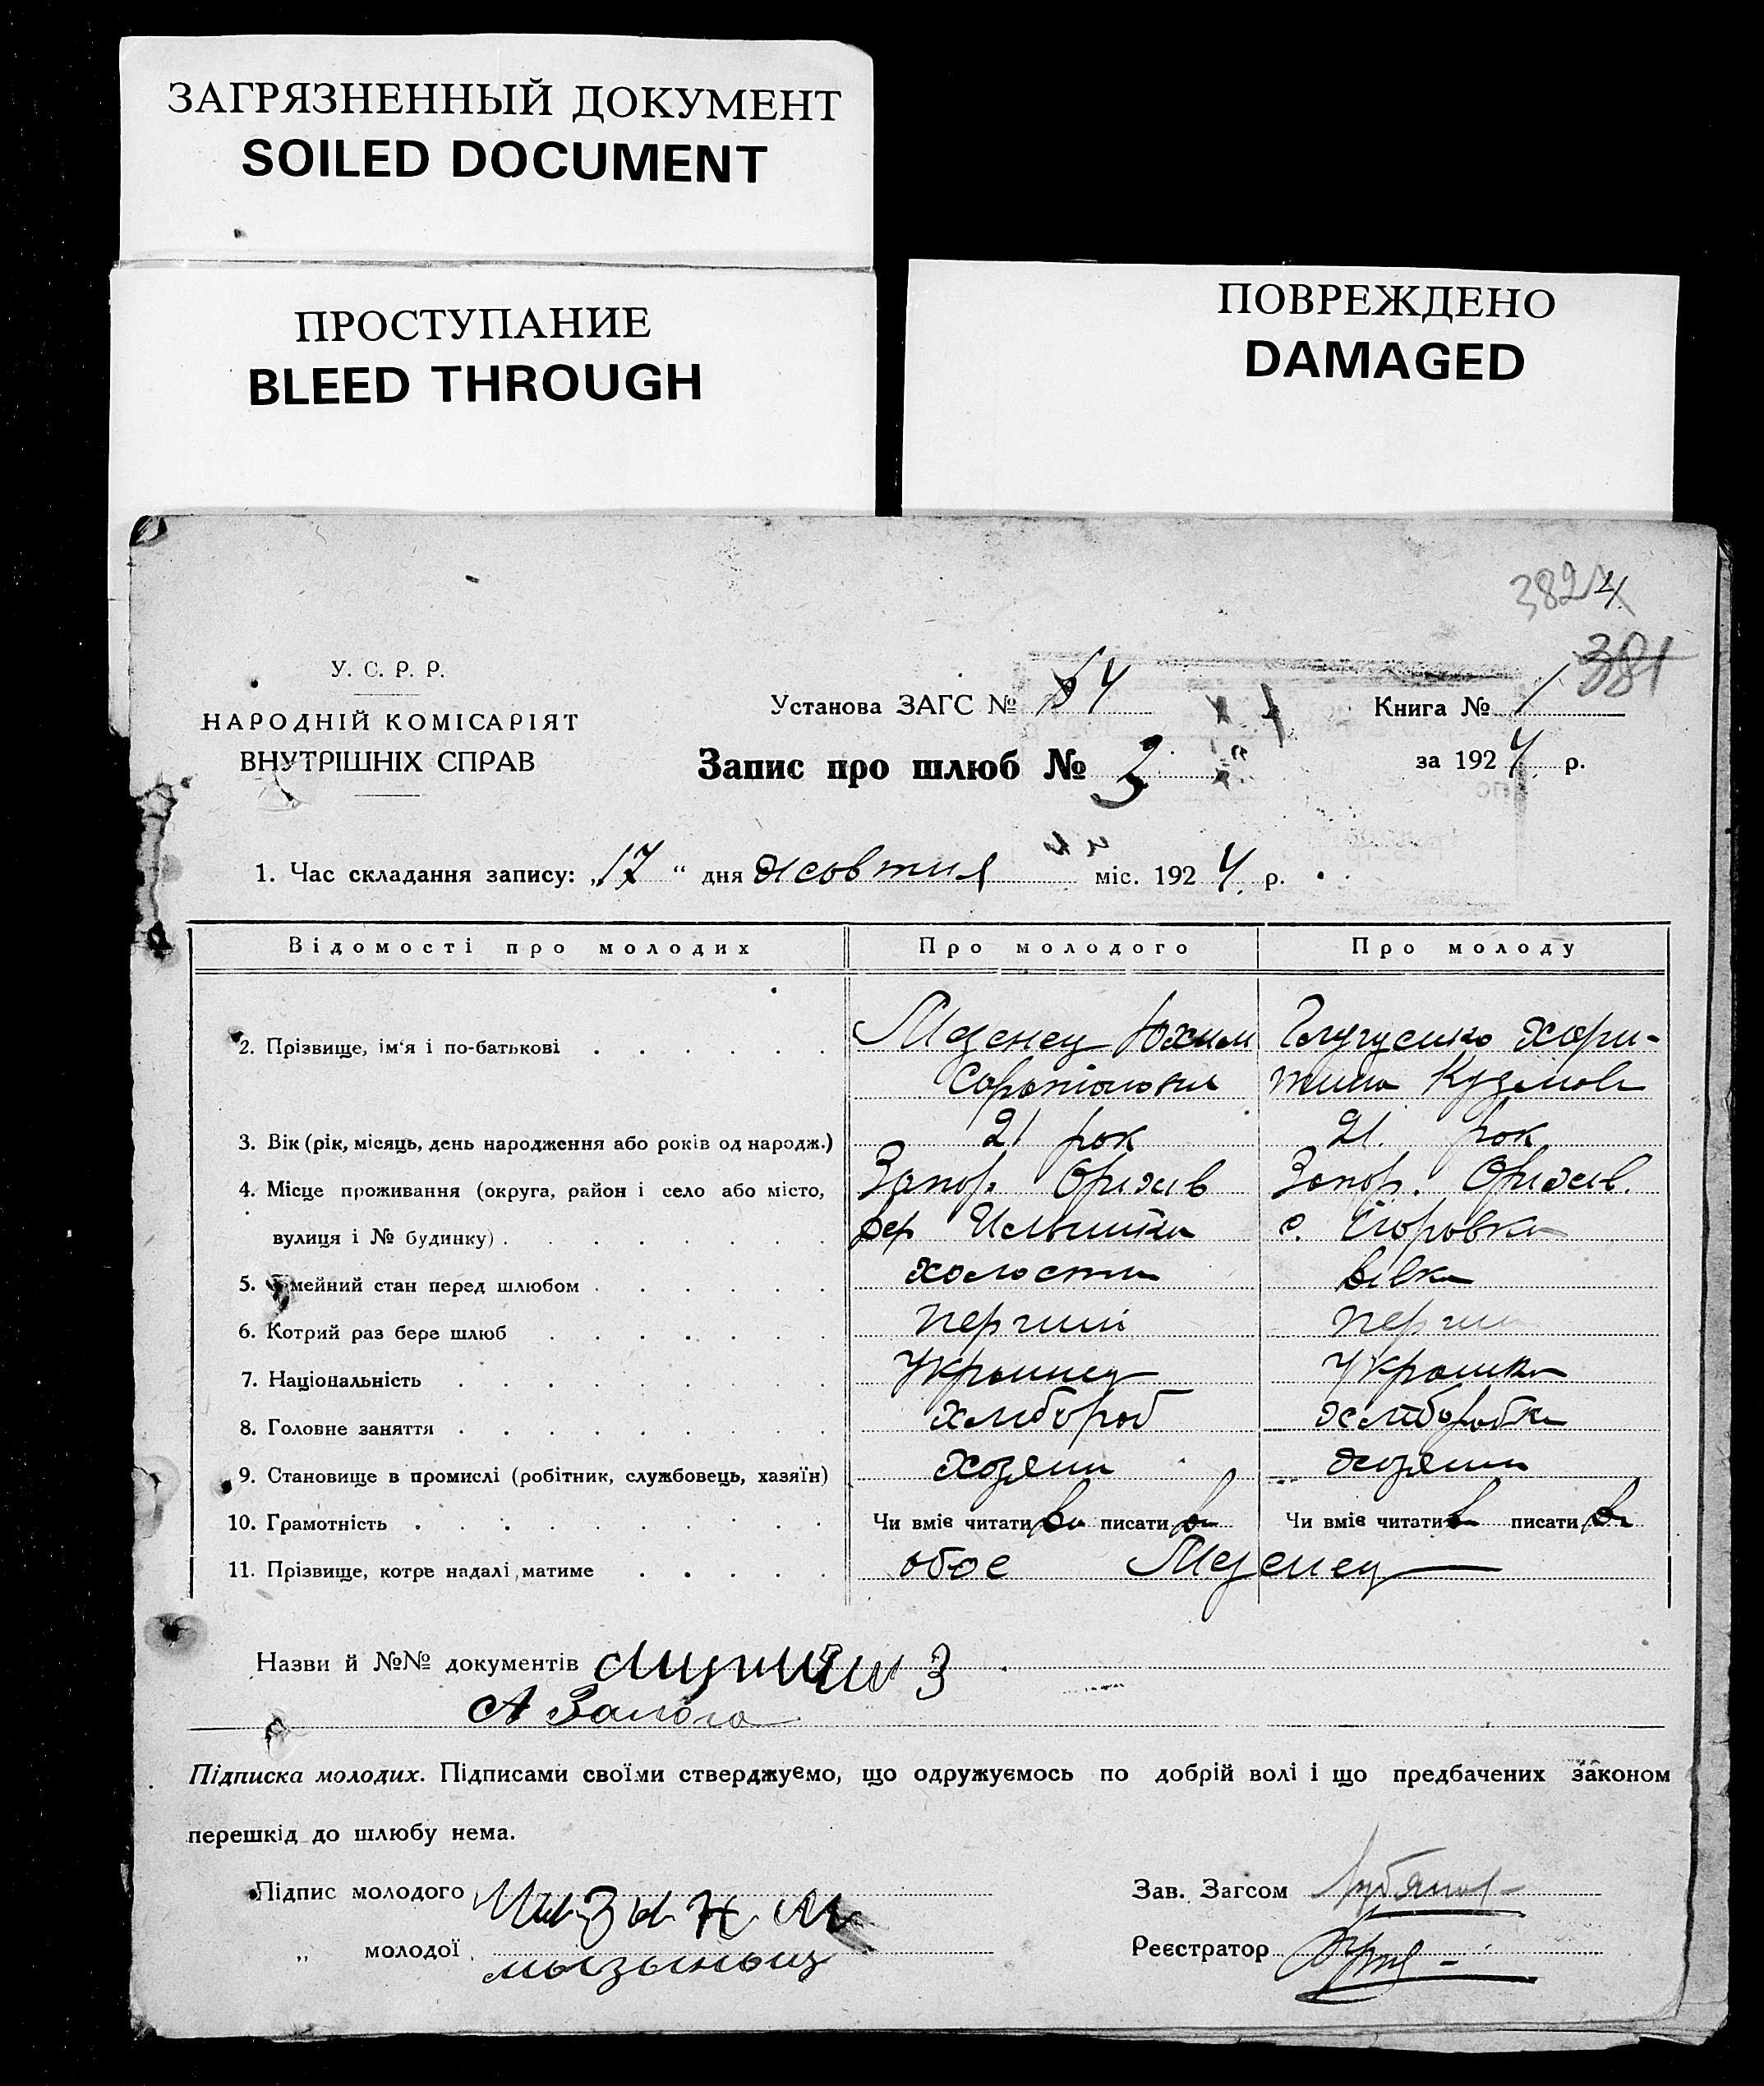 ЗАГРЯЗНЕННЫЙ ДОКУМЕНТ
SOILED DOCUMENT
ПРОСТУПАНИЕ
BLEED THROUGH
ПОВРЕЖДЕНО
DAMAGED
382
381
У. С. Р. Р.
НАРОДНІЙ КОМІСАРІЯТ
ВНУТРІШНІХ СПРАВ
Установа ЗАГС № 54
Книга № 1
Запис про шлюб № 3
за 1924 р.
1. Час складання запису: „17 “ дня жовтня міс. 1924 р.
Відомості про молодих Про молодого Про молоду
2. Прізвище, ім'я і по-батькові Мезенец Юхим Хари-
тина Кузьмов
3. Вік (рік, місяць, день народження або років од народж.) 21 рок 21. рок
4. Місце проживання (округа, район і село або місто, Запор. Оріхів Запор. Оріхів.
вулиця і № будинку) с. Єгоровка
5. Сімейний стан перед шлюбом холостий дівка
6. Котрий раз бере шлюб перший перши
7. Національність Украинец Украинка
8. Головне заняття хлібороб хліборобка
9. Становище в промислі (робітник, службовець, хазяїн) хозяин хозяин
10. Грамотність Чи вміє читати писати Чи вміє читати писати
11. Прізвище, котре надалі матиме обоє Мезенец
Назви й №№ документів
Підписка молодих. Підписами своїми стверджуємо, що одружуємось по добрій волі і що предбачених законом
перешкід до шлюбу нема.
Підпис молодого
Зав. Загсом
„ молодої мызыныц
Реєстратор